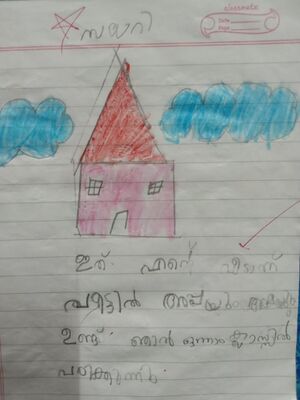 classmate
Date
Page
ഡയറി
ഇത് എന്റെ വീടാണ്
വീട്ടിൽ അപ്പയും അമ്മയും
ഉണ്ട്. ഞാൻ ഒന്നാം ക്ലാസ്സിൽ
പഠിക്കുന്നു.